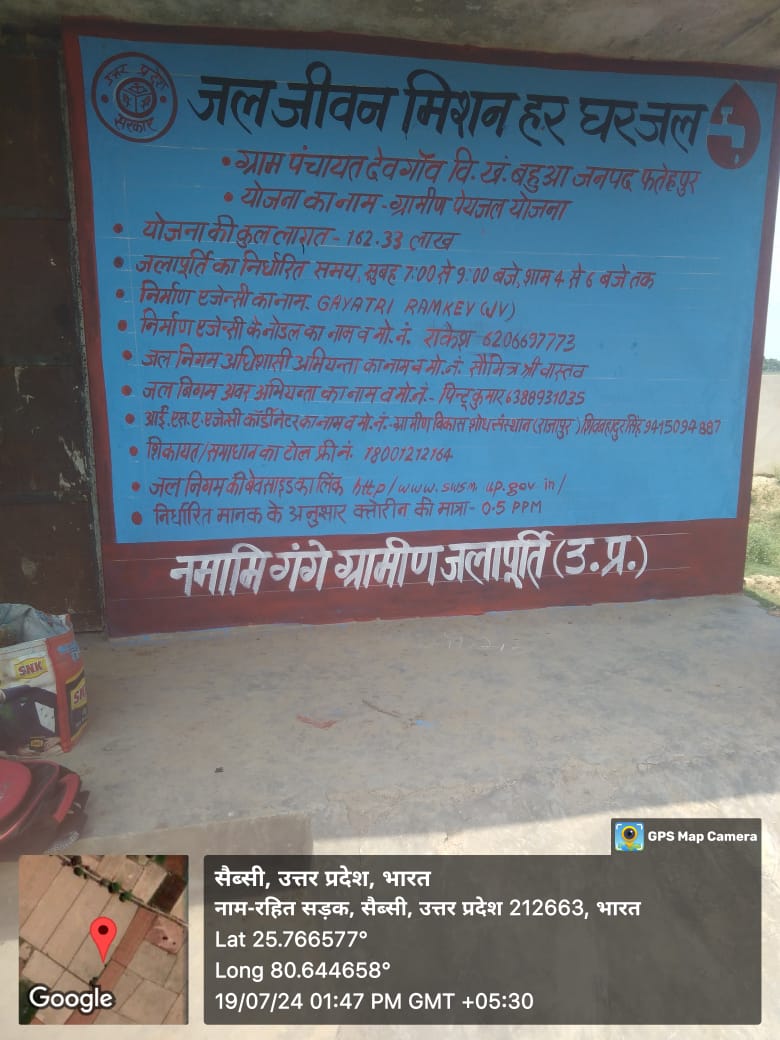 उत्तर प्रदेश
सरकार
जल जीवन मिशन हर घर जल
• ग्राम पंचायत देवगाँव वि. खं. बहुआ जनपद फतेहपुर
• योजना का नाम - ग्रामीण पेयजल योजना
• योजना की कुल लागत - 162.33 लाख
• जलापूर्ति का निर्धारित समय, सुबह 7:00 से 9:00 बजे, शाम 4 से 6 बजे तक
• निर्माण एजेन्सी का नाम. GAYATRI RAMKEY (JV)
• निर्माण एजेन्सी के नोडल का नाम व मो. नं. राकेश 6206697773
• जल निगम अधिशासी अभियन्ता का नाम व मो. नं. सौमित्र श्री वास्तव
• जल बिगम अवर अभियन्ता का नाम व मो.नं.- पिन्टू कुमार 6388931035
• आई.एस.ए. एजेंसी कॉर्डीनेटर का नाम व मो.नं.- ग्रामीण विकास शोध संस्थान (राजापुर) शिवबहादुर सिंह 9415094887
• शिकायत/समाधान का टोल फ्री नं. 18001212164
• जल निगम की बेवसाइड का लिंक http/www.swsm up.gov in/
• निर्धारित मानक के अनुसार क्लोरीन की मात्रा - 0.5 PPM
नमामि गंगे ग्रामीण जलापूर्ति (उ.प्र.)
SNK
GPS Map Camera
सैब्सी, उत्तर प्रदेश, भारत
नाम-रहित सड़क, सैब्सी, उत्तर प्रदेश 212663, भारत
Lat 25.766577°
Long 80.644658°
19/07/24 01:47 PM GMT +05:30
Google